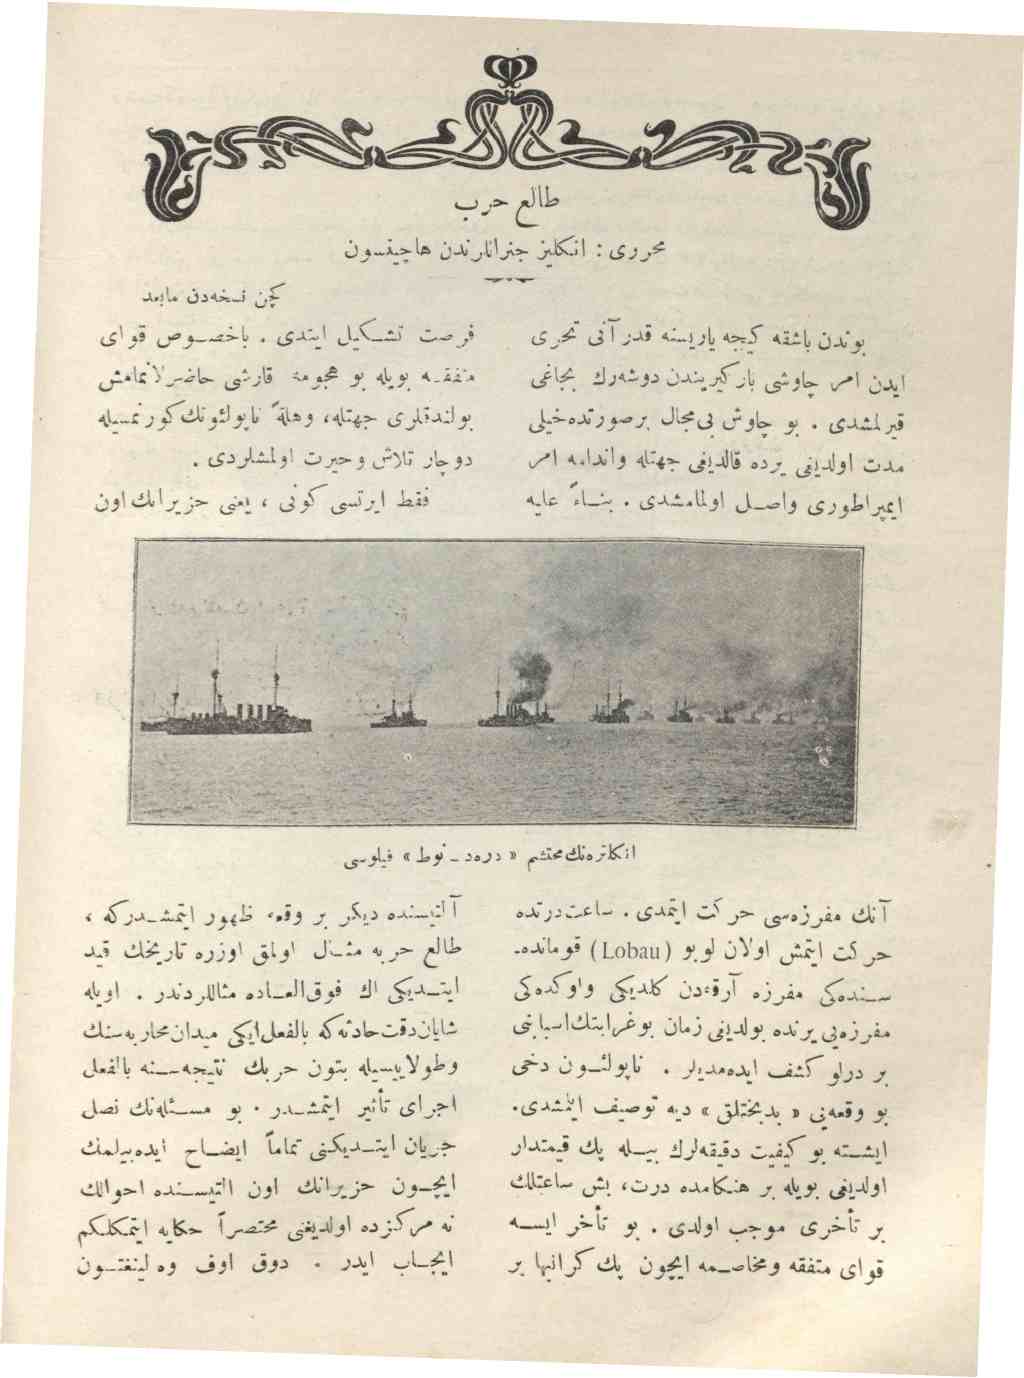 طالع حرب
محرری : انکلیز جنراللرندن هاچینسون
کچن نسخه‌دن مابعد
بوندن باشقه کیجه یاریسنه قدر آنی تحری
ایدن امر چاوشی بارکیریندن دوشه‌رك بجاغی
قیرلمشدی . بو چاوش بی‌مجال برصورتده‌خیلی
مدت اولدیغی یرده قالدیغی جهتله واندامه امر
ایمپراطوری واصل اولمامشدی . بناءً علیه
فرصت تشکیل ایتدی . باخصوص قوای
متفقه بویله بو هجومه قارشی حاضرلانمامش
بولندقلری جهتله، وهلةً ناپولئونك‌کورنمسیله
دوچار تلاش و حیرت اولمشلردی .
فقط ایرتسی کونی ، یعنی حزیرانك اون
انکلتره‌نك‌محتشم « دره‌د ـ نوط » فیلوسی
آنك مفرزه‌سی حرکت ایتمدی . ساعت‌درتده
حرکت ایتمش اولان لوبو (Lobau) قومانده‌ـ
سنده‌کی مفرزه آرقه‌دن کلدیکی واوکده‌کی
مفرزه‌یی یرنده بولدیغی زمان بوغرابتك‌اسبابنی
بر درلو کشف ایده‌مدیلر . ناپولئون دخی
بو وقعه‌یی « بدبختلق » دیه توصیف ایتمشدی.
ایشته بو کیفیت دقیقه‌لرك بیله پك قیمتدار
اولدیغی بویله بر هنکامده درت، بش ساعتلك
بر تأخری موجب اولدی . بو تأخر ایسه
قوای متفقه ومخاصمه ایچون پك کرانبها بر
آلتیسنده دیکر بر وقعه ظهور ایتمشدرکه ،
طالع حربه مثال اولمق اوزره تاریخك قید
ایتدیکی اك فوق‌العاده مثاللردندر . اویله
شایان‌دقت‌حادثه‌که بالفعل‌ایکی میدان‌محاربه‌سنك
وطولاییسیله بتون حربك نتیجه‌سنه بالفعل
اجرای تأثیر ایتمشدر . بو مسئله‌نك نصل
جریان ایتدیکنی تماماً ایضاح ایده‌بیلمك
ایچون حزیرانك اون التیسنده احوالك
نه مرکزده اولدیغنی مختصراً حکایه ایتمکلکم
ایجاب ایدر . دوق اوف وه‌لینغتون